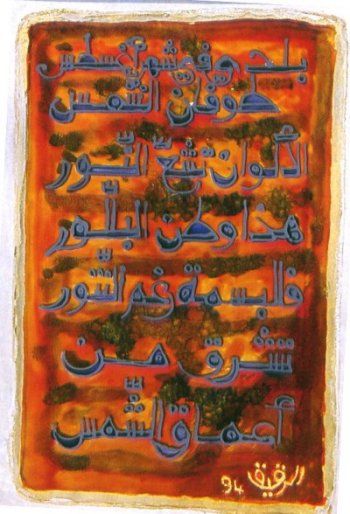 بلدي وفي شهر أغسطس
طوفان الشّمس
الألوان تشعّ النّور
هذا وطن البلّور
فالبسمة رغم السّور
تشرق من
أعماق الشّمس
94